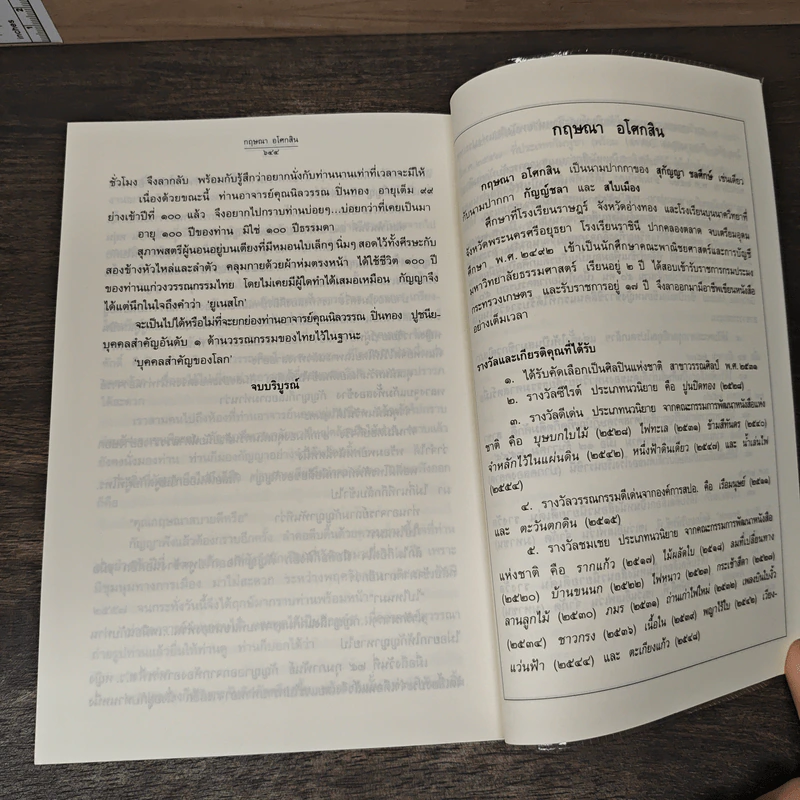 กฤษณา อโศกสิน
๖๔๔
ชั่วโมง จึงลากลับ พร้อมกับรู้สึกว่าอยากนั่งกับท่านนานเท่าที่เวลาจะมีให้
เนื่องด้วยขณะนี้ ท่านอาจารย์คุณนิลวรรณ ปิ่นทอง อายุเต็ม ๙๙
ย่างเข้าปีที่ ๑๐๐ แล้ว จึงอยากไปกราบท่านบ่อยๆ...บ่อยกว่าที่เคยเป็นมา
อายุ ๑๐๐ ปีของท่าน มิใช่ ๑๐๐ ปีธรรมดา
สุภาพสตรีผู้นอนอยู่บนเตียงที่มีหมอนใบเล็กๆ นิ่มๆ สอดไว้ทั้งศีรษะกับ
สองข้างหัวไหล่และลำตัว คลุมกายด้วยผ้าห่มตรงหน้า ได้ใช้ชีวิต ๑๐๐ ปี
ของท่านแก่วงวรรณกรรมไทย โดยไม่เคยมีผู้ใดทำได้เสมอเหมือน กัญญาจึง
ได้แต่นึกในใจถึงคำว่า ‘ยูเนสโก’
จะเป็นไปได้หรือไม่ที่จะยกย่องท่านอาจารย์คุณนิลวรรณ ปิ่นทอง ปูชนีย-
บุคคลสำคัญอันดับ ๑ ด้านวรรณกรรมของไทยไว้ในฐานะ
‘บุคคลสำคัญของโลก’
จบบริบูรณ์
กฤษณา อโศกสิน
กฤษณา อโศกสิน เป็นนามปากกาของ สุกัญญา ชลศึกษ์ เช่นเดียว
กับนามปากกา กัญญ์ชลา และ สไบเมือง
ศึกษาที่โรงเรียนราษฎร์ จังหวัดอ่างทอง และโรงเรียนบุนนาควิทยาที่
จังหวัดพระนครศรีอยุธยา โรงเรียนราชินี ปากคลองตลาด จบเตรียมอุดม
ศึกษา พ.ศ.๒๔๙๒ เข้าเป็นนักศึกษาคณะพาณิชยศาสตร์และการบัญชี
มหาวิทยาลัยธรรมศาสตร์ เรียนอยู่ ๒ ปี ได้สอบเข้ารับราชการกรมประมง
กระทรวงเกษตร และรับราชการอยู่ ๑๗ ปี จึงลาออกมามีอาชีพเขียนหนังสือ
อย่างเต็มเวลา
รางวัลและเกียรติคุณที่ได้รับ
๑. ได้รับคัดเลือกเป็นศิลปินแห่งชาติ สาขาวรรณศิลป์ พ.ศ.๒๕๓๑
๒. รางวัลซีไรต์ ประเภทนวนิยาย คือ ปูนปิดทอง (๒๕๒๘)
๓. รางวัลดีเด่น ประเภทนวนิยาย จากคณะกรรมการพัฒนาหนังสือแห่ง
ชาติ คือ บุษบกใบไม้ (๒๕๒๘) ไฟทะเล (๒๕๓๑) ข้ามสีทันดร (๒๕๔๐)
จำหลักไว้ในแผ่นดิน (๒๕๔๒), หนึ่งฟ้าดินเดียว (๒๕๔๗) และ น้ำเล่นไฟ
(๒๕๕๔)
๔. รางวัลวรรณกรรมดีเด่นจากองค์การสปอ. คือ เรือมนุษย์ (๒๕๑๑)
และ ตะวันตกดิน (๒๕๑๕)
๕. รางวัลชมเชย ประเภทนวนิยาย จากคณะกรรมการพัฒนาหนังสือ
แห่งชาติ คือ รากแก้ว (๒๕๑๗) ไม้ผลัดใบ (๒๕๑๘) ลมที่เปลี่ยนทาง
(๒๕๒๐) บ้านขนนก (๒๕๒๒) ไฟหนาว (๒๕๒๓) กระเช้าสีดา (๒๕๒๗)
ลานลูกไม้ (๒๕๓๐) ภมร (๒๕๓๑) ถ่านเก่าไฟใหม่ (๒๕๓๒) เพลงบินใบงิ้ว
(๒๕๓๔) ชาวกรง (๒๕๓๖) เนื้อใน (๒๕๓๙) พญาไร้ใบ (๒๕๔๒) เวียง-
แว่นฟ้า (๒๕๔๔) และ ตะเกียงแก้ว (๒๕๔๘)